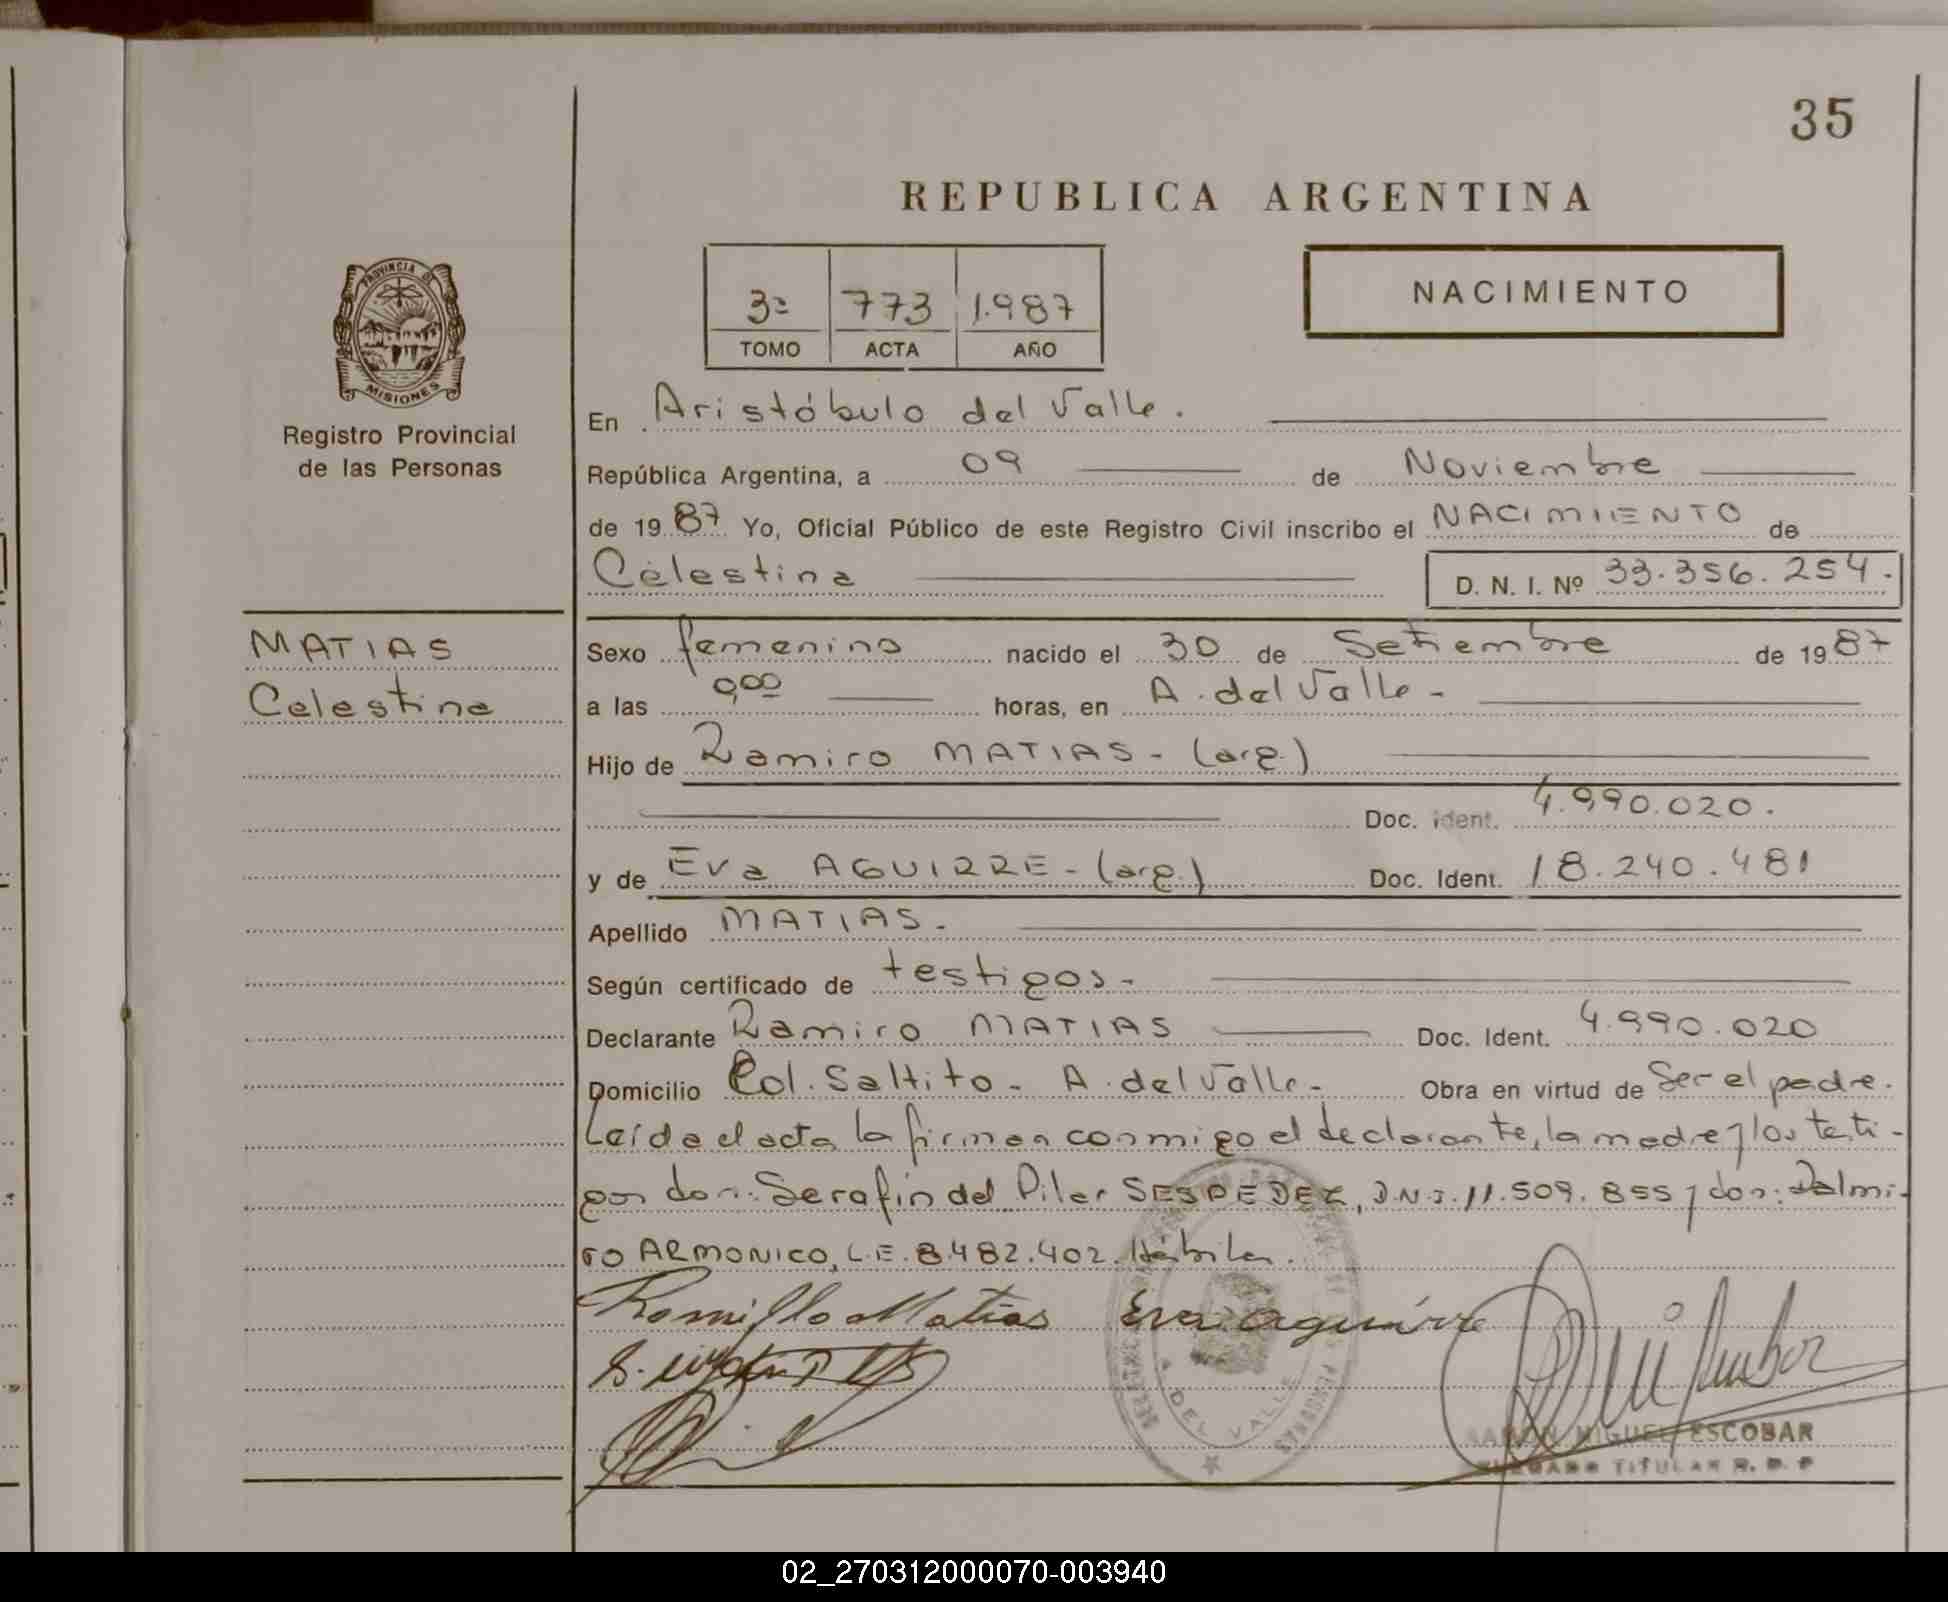 35
REPUBLICA ARGENTINA
3º 773 1.987
TOMO ACTA AÑO
NACIMIENTO
PROVINCIA DE
MISIONES
Registro Provincial
de las Personas
MATIAS
Celestina
En Aristóbulo del Valle.
República Argentina, a 09 de Noviembre
de 1987 Yo, Oficial Público de este Registro Civil inscribo el NACIMIENTO de
Celestina D. N. I. Nº 33.356.254.
Sexo femenino nacido el 30 de Setiembre de 1987
a las 9,00 horas, en A. del Valle -
Hijo de Ramiro MATIAS - (arg.)
Doc. Ident. 4.990.020.
y de Eva AGUIRRE - (arg.) Doc. Ident. 18.240.481
Apellido MATIAS.
Según certificado de testigos -
Declarante Ramiro MATIAS Doc. Ident. 4.990.020
Domicilio Col. Saltito - A. del Valle - Obra en virtud de Ser el padre.
Leída el acta la firman conmigo el declarante, la madre y los testi-
gos don: Serafín del Pilar SESPEDEZ, D.N.I. 11.509.855 y don: Dalmi-
ro ARMONICO, L.E. 8.482.402. Hábiles.
Romillo Matias Eva aguirre
A. DEL VALLE
RAMON MIGUEL ESCOBAR
DELEGADO TITULAR R. P. P
02_270312000070-003940